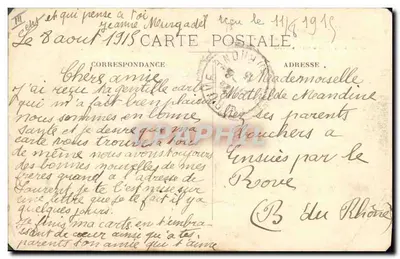 et qui pense a toi
Jeanne reçu le 11/8 1915
Le 8 aout 1915 CARTE POSTALE
CORRESPONDANCE
ADRESSE
Chère amie
J'ai reçu ta gentille carte
qui m'a fait bien plaisir
nous sommes en bonne
santé et je desire que ma
carte nous trouve a toi
de même nous avons toujours
des bonnes nouvelles de mes
freres quand a l'adresse de
je te l'est mui sur
une lettre que je te fait il y a
quelques jours.
Je finis ma carte en t'embra
ssant de cœur ainsi qu'a tes
parents ton amie qui t'aime
Mademoselle
Mathilde Mandine
chez ses parents
Bouchers a
Ensués par le
Rove
(B du Rhône)
CARPHILA